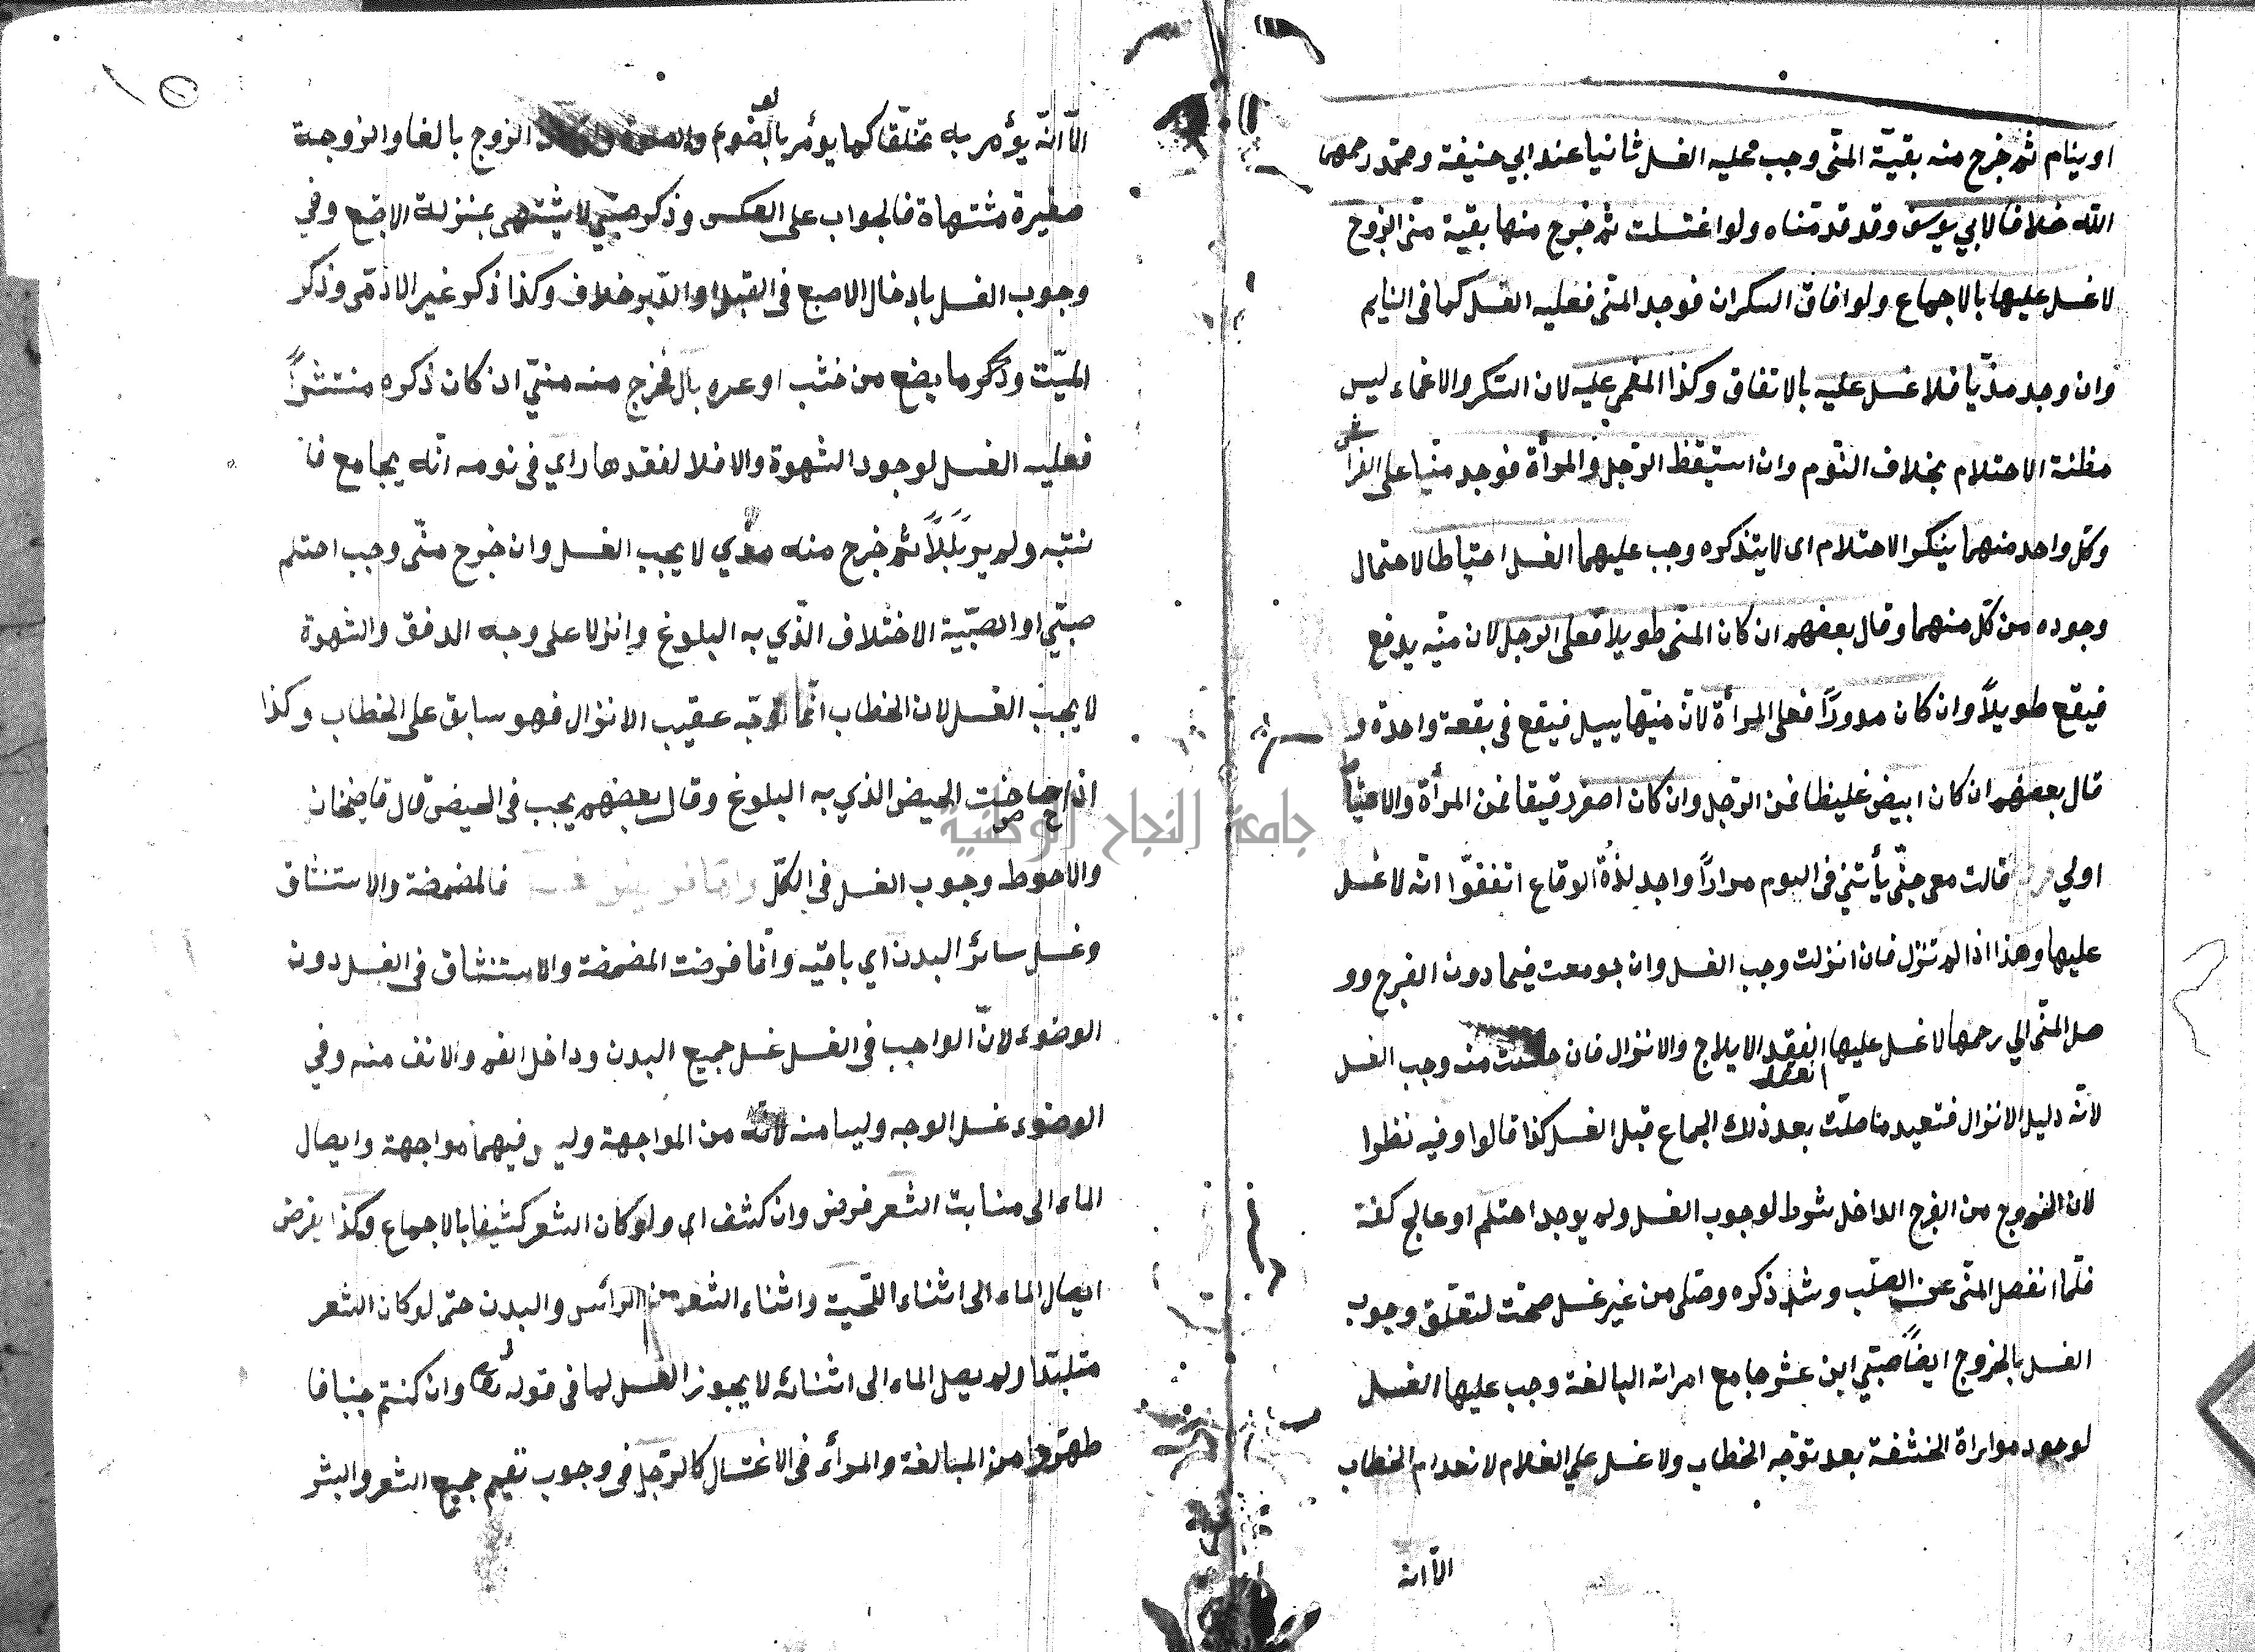 او ينام ثم خرج منه بقيّة المنّى وجب عليه الغسل ثانيا عند ابي حنيفة ومحمّد رحمهما
الله خلافا لابي يوسف وقد قدمّناه ولو اغتسلت ثم خرج منها بقيّة منّى الزوج
لا غسل عليها بالاجماع ولو افاق السكران فوجد المنّى فعليه الغسل كما فى النايم
وان وجد مذّيا فلا غسل عليه بالاتفاق وكذا المغمى عليه لان السّكر والاغماء ليس
مظنة الاحتلام بخلاف النّوم وان استيقظ الرّجل والمرأة فوجد منّيا على الفراش
وكلّ واحد منهما ينكر الاحتلام اى لا يتذكره وجب عليهما الغسل احتياطا لاحتمال
وجوده من كلّ منهما وقال بعضهم ان كان المنّى طويلا فعلى الرجل لان منيّه يدفع
فيقع طويلاً وان كان مدورًا فعلى المرأة لانّ منيّها يسيل فيقع فى بقعة واحدة و
قال بعضهم ان كان ابيض غليظا فمن الرّجل وان كان اصفر رقيقا فمن المرأة والاحتياط
اولي قالت معى جنّى يأتنى فى اليوم مرارًا واجد لذّة الوقاع اتفقوّا انّه لا غسل
عليها وهذا اذا لم تنزل فان انزلت وجب الغسل وان جومعت فيما دون الفرج وو
صل المنّى الي رحمها لا غسل عليها لفقد الايلاج والانزال فان حملت منه وجب الغسل
لانّه دليل الانزال فتعيد ما صلّت بعد ذلك الجماع قبل الغسل كذا قالوا وفيه نظرا
لان الخروج من الفرج الداخل شرط لوجوب الغسل ولم يوجد احتلم او عالج كفه
فلمّا انفصل المنّى عن الصّلب وشدّ ذكره وصّلى من غير غسل صحّت لتعلّق وجوب
الغسل بالخروج ايضًا صبّي ابن عشر جامع امراته البالغة وجب عليها الغسل
لوجود مواراة الحشفة بعد توّجه الخطاب ولا غسل علي الغلام لانعدام الخطاب
الاّ انه
الاّ انّه يؤمر به تخلّقا كما يؤمر بالوضوء والصلوة الزوج بالغا والزوجة
صغيرة مشتهاة فالجواب على العكس وذكر صبّي لا يشتهى بمنزلة الاصبع وفي
وجوب الغسل بادخال الاصبع فى القبل او الدّبر خلاف وكذا ذكر غير الادمّى وذكر
الميّت وذكر ما يضع من خشب او غيره بال فخرج منه منىّ ان كان ذكره منتشراً
فعليه الغسل لوجود الشهوة والا فلا لفقدها راي فى نومه انّه يجامع فا
نتبه ولم ير بَلَلاً ثم خرج منه مذي لا يجب الغسل وان خرج منّى وجب احتلم
صبّي او الصّبّية الاختلاف الّذي به البلوغ وانزلا على وجه الدفق والشهوة
لا يجب الغسل لان الخطاب انّما توجّه عقيب الانزال فهو سابق على الخطاب وكذا
اذا حاضت الحيض الذي به البلوغ وقال بعضهم يجب فى الحيض قال قاضيخان
والاحوط وجوب الغسل فى الكلّ فالمضمضة والاستنشاق
وغسل سائر البدن اي باقيه وانّما فرضت المضمضة والاستنشاق فى الغسل دون
الوضوء لانّ الواجب فى الغسل غسل جميع البدن وداخل الفم والانف منه وفي
الوضوء غسل الوجه وليسا منه لانّه من المواجهة وليس فيهما مواجهة وايصال
الماء الى منابت الشعر فرض وان كشف اى ولو كان الشعر كثيفا بالاجماع وكذا يفرض
ايصال الماء الى اثناء اللّحية واثناء الشعر من الرأس والبدن حتى لو كان الشعر
متلبّدا ولم يصل الماء الى اثنائه لا يجوز الغسل لما فى قوله تع وان كنتم جنبا فا
طهّروا من المبالغة والمرأة فى الاغتسال كالرّجل فى وجوب تعيم جميع الشعر والبشر
جامعة النجاح الوطنية